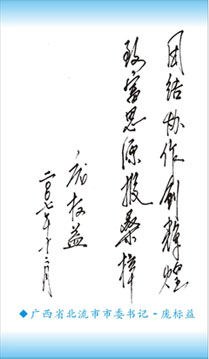 团结协作创辉煌
致富思源报桑梓
庞标益
二〇〇七年十二月
◆广西省北流市市委书记-庞标益